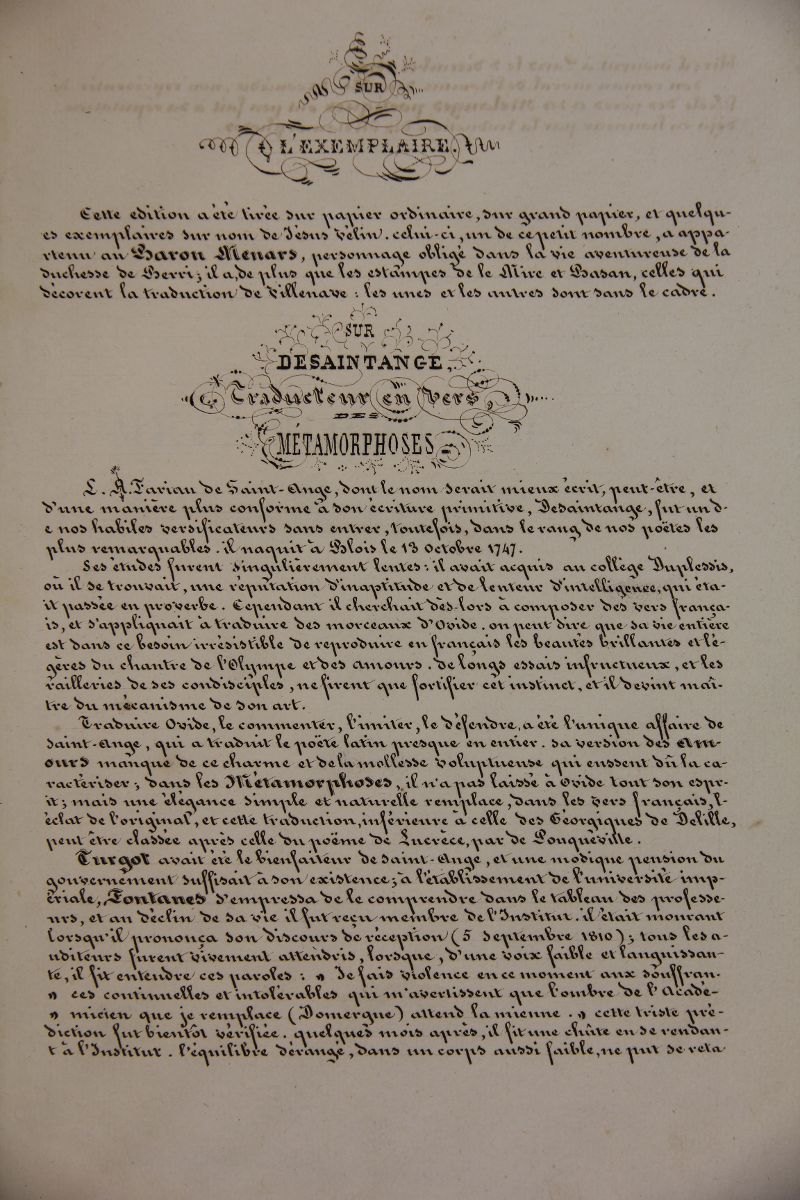 SUR
L'EXEMPLAIRE.
Cette edition a été tirée sur papier ordinaire, sur grand papier, et quelqu-
es exemplaires sur nom de Jésus vélin. celui-ci, un de ce petit nombre, a appa-
rtenu au Baron Menars, personnage obligé dans la vie aventureuse de la
duchesse de Berri; il a, de plus que les estampes de le Mire et Basan, celles qui
décorent la traduction de Villenave : les unes et les autres sont sans le cadre.
SUR
DESAINTANGE,
Traducteur en vers,
DES
MÉTAMORPHOSES
L. A. Fariau de Saint-Ange, dont le nom serait mieux écrit, peut-être, et
d'une manière plus conforme à son écriture primitive, Desaintange, fut un d-
e nos habiles versificateurs sans entrer, toutefois, dans le rang de nos poëtes les
plus remarquables. il naquit à Blois le 13 Octobre 1747.
Ses études furent singulièrement lentes : il avait acquis au collège Duplessis,
où il se trouvait, une réputation d'inaptitude et de lenteur d'intelligence, qui éta-
it passée en proverbe. Cependant il cherchait dès-lors à composer des vers frança-
is, et s'appliquait à traduire des morceaux d'Ovide. on peut dire que sa vie entière
est dans ce besoin irrésistible de reproduire en français les beautés brillantes et lé-
gères du chantre de l'Olympe et des amours. de longs essais infructueux, et les
railleries de ses condisciples, ne firent que fortifier cet instinct, et il devint maî-
tre du mécanisme de son art.
Traduire Ovide, le commenter, l'imiter, le défendre, a été l'unique affaire de
Saint-Ange, qui a traduit le poëte latin presque en entier. sa version des Am-
ours manque de ce charme et de la mollesse voluptueuse qui eussent dû la ca-
ractériser; dans les Métamorphoses, il n'a pas laissé à Ovide tout son espr-
it; mais une élégance simple et naturelle remplace, dans les vers français, l'-
éclat de l'original, et cette traduction, inférieure à celle des Géorgiques de Delille,
peut être classée après celle du poëme de Lucrèce, par de Pongerville.
Turgot avait été le bienfaiteur de Saint-Ange, et une modique pension du
gouvernement suffisait à son existence; à l'établissement de l'université imp-
ériale, Fontanes s'empressa de le comprendre dans le tableau des professe-
urs, et au déclin de sa vie il fut reçu membre de l'Institut. il était mourant
lorsqu'il prononça son discours de réception (5 Septembre 1810); tous les a-
uditeurs furent vivement attendris, lorsque, d'une voix faible et languissan-
te, il fit entendre ces paroles : » Je fais violence en ce moment aux souffran-
» ces continuelles et intolérables qui m'avertissent que l'ombre de l'Acadé-
» micien que je remplace (Domergue) attend la mienne. » cette triste pré-
diction fut bientôt vérifiée. quelques mois après, il fit une chûte en se rendan-
t à l'Institut. l'équilibre dérangé, dans un corps aussi faible, ne put se réta